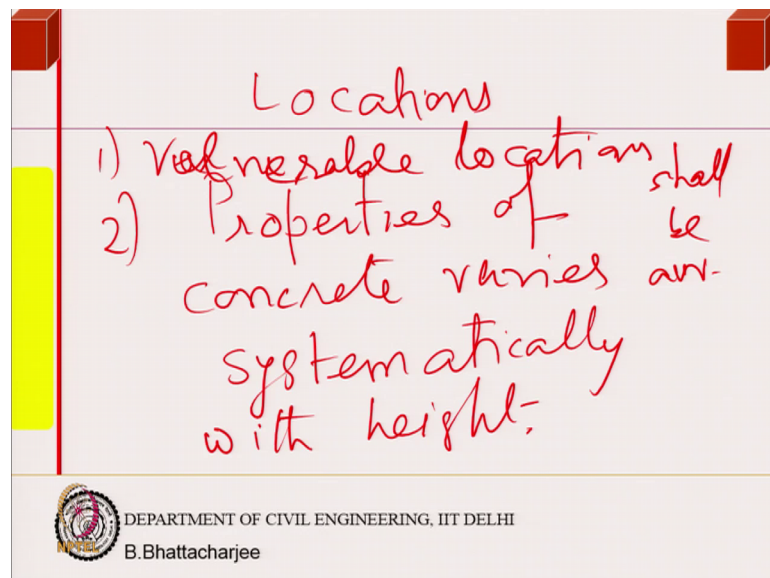 Locations
1) Vulnerable locations shall be
2) Properties of
concrete varies
systematically
with height.
DEPARTMENT OF CIVIL ENGINEERING, IIT DELHI
B.Bhattacharjee
NPTEL